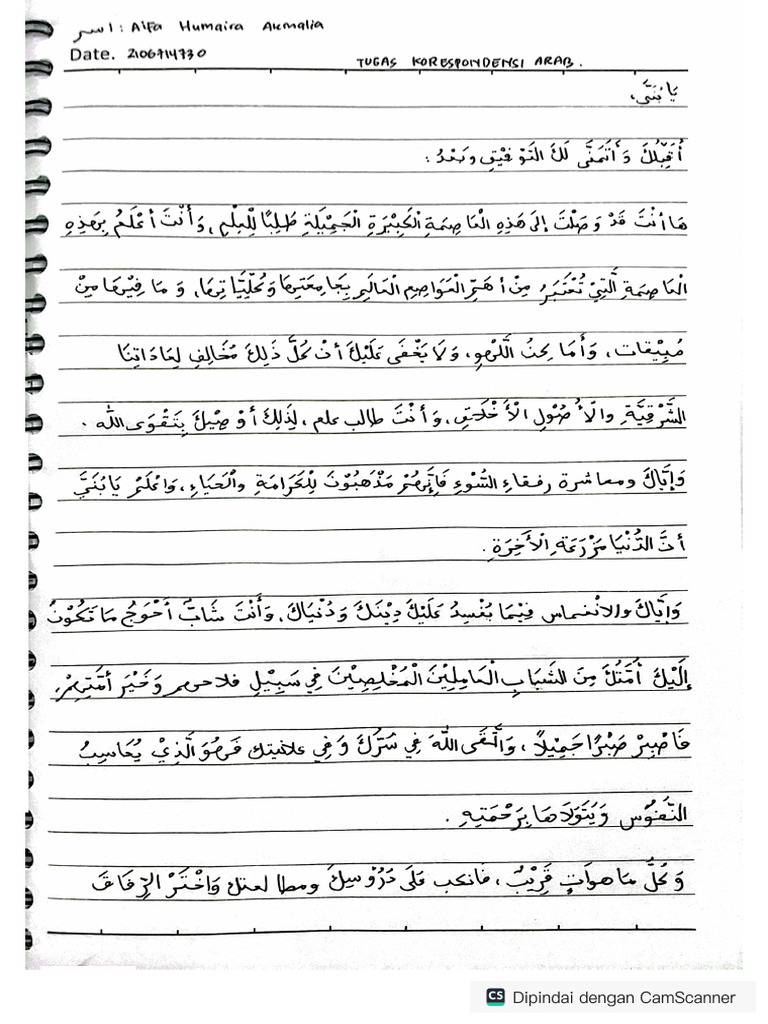 اسم : Alfa Humaira Akmalia
Date. 2106714730
TUGAS KORESPONDENSI ARAB.
يَا بُنَيَّ،
أُقَبِّلُكَ وَأَتَمَنَّى لَكَ التَّوْفِيْقِ وَبَعْدُ :
هَا أَنْتَ قَدْ وَصَلْتَ إِلَى هَذِهِ الْعَاصِمَةِ الْكَبِيْرَةِ الْجَمِيْلَةِ طَلِبًا لِلْعِلْمِ، وَأَنْتَ أَعْلَمُ بِهَذِهِ
الْعَاصِمَةِ الَّتِيْ تُعْتَبَرُ مِنْ أَهَمِّ الْعَوَاصِمِ الْعَالَمِ بِجَامِعَتِهَا وَكُلِّيَّاتِهَا، وَمَا فِيْهَا مِنْ
وَأَمَا كِنُ اللَّهْوِ، وَلَا يَخْفَى عَلَيْكَ أَنْ كُلَّ ذَلِكَ مُخَالِفٌ لِعَادَاتِنَا
الشَّرْقِيَّةِ وَالْأُصُوْلِ الْأَخْلَاقِ، وَأَنْتَ طالب علم، لِذَلِكَ أَوْصِيْكَ بِتَقْوَى الله .
وَإِيَّاكَ ومعاشرة رفقاءِ السُّوْءِ فَإِنَّهُمْ مَذْهَبُوْنَ لِلْكَرَامَةِ وَالْحَيَاءِ، وَاعْلَمْ يَابُنَيَّ
أَنَّ الدُّنْيَا مَزْرَعَةِ الْأَخِرَةِ .
وَإِيَّاكَ والانْغماس فِيْمَا يُفْسِدُ عَلَيْكَ دِيْنَكَ وَدُنْيَاكَ، وَأَنْتَ شَابٌّ أَحْوَجُ مَا تَكُوْنُ
إِلَيْكَ أُمَّتُكَ مِنَ الشَّبَابِ الْعَامِلِيْنَ الْمُخْلِصِيْنَ فِي سَبِيْلِ فلاحهم وَخَيْرَ أُمَّتِهِمْ،
فَاصْبِرْ صَبْرًا جَمِيْلًا، وَاتَّقَى اللهَ فِي سَرِّكَ وَفِي علانيتك فَهُوَ الَّذِيْ يُحَاسِبُ
النُّفُوْس وَيَتَوَلَاهَا بِرَحْمَتِهِ .
وَكُلُّ مَا هوآتٍ قَرِيْبٌ، فانكب عَلَى دُرُوْسِكَ ومطالعتك وَاخْتَرْ الرِّفَاقَ
CS Dipindai dengan CamScanner